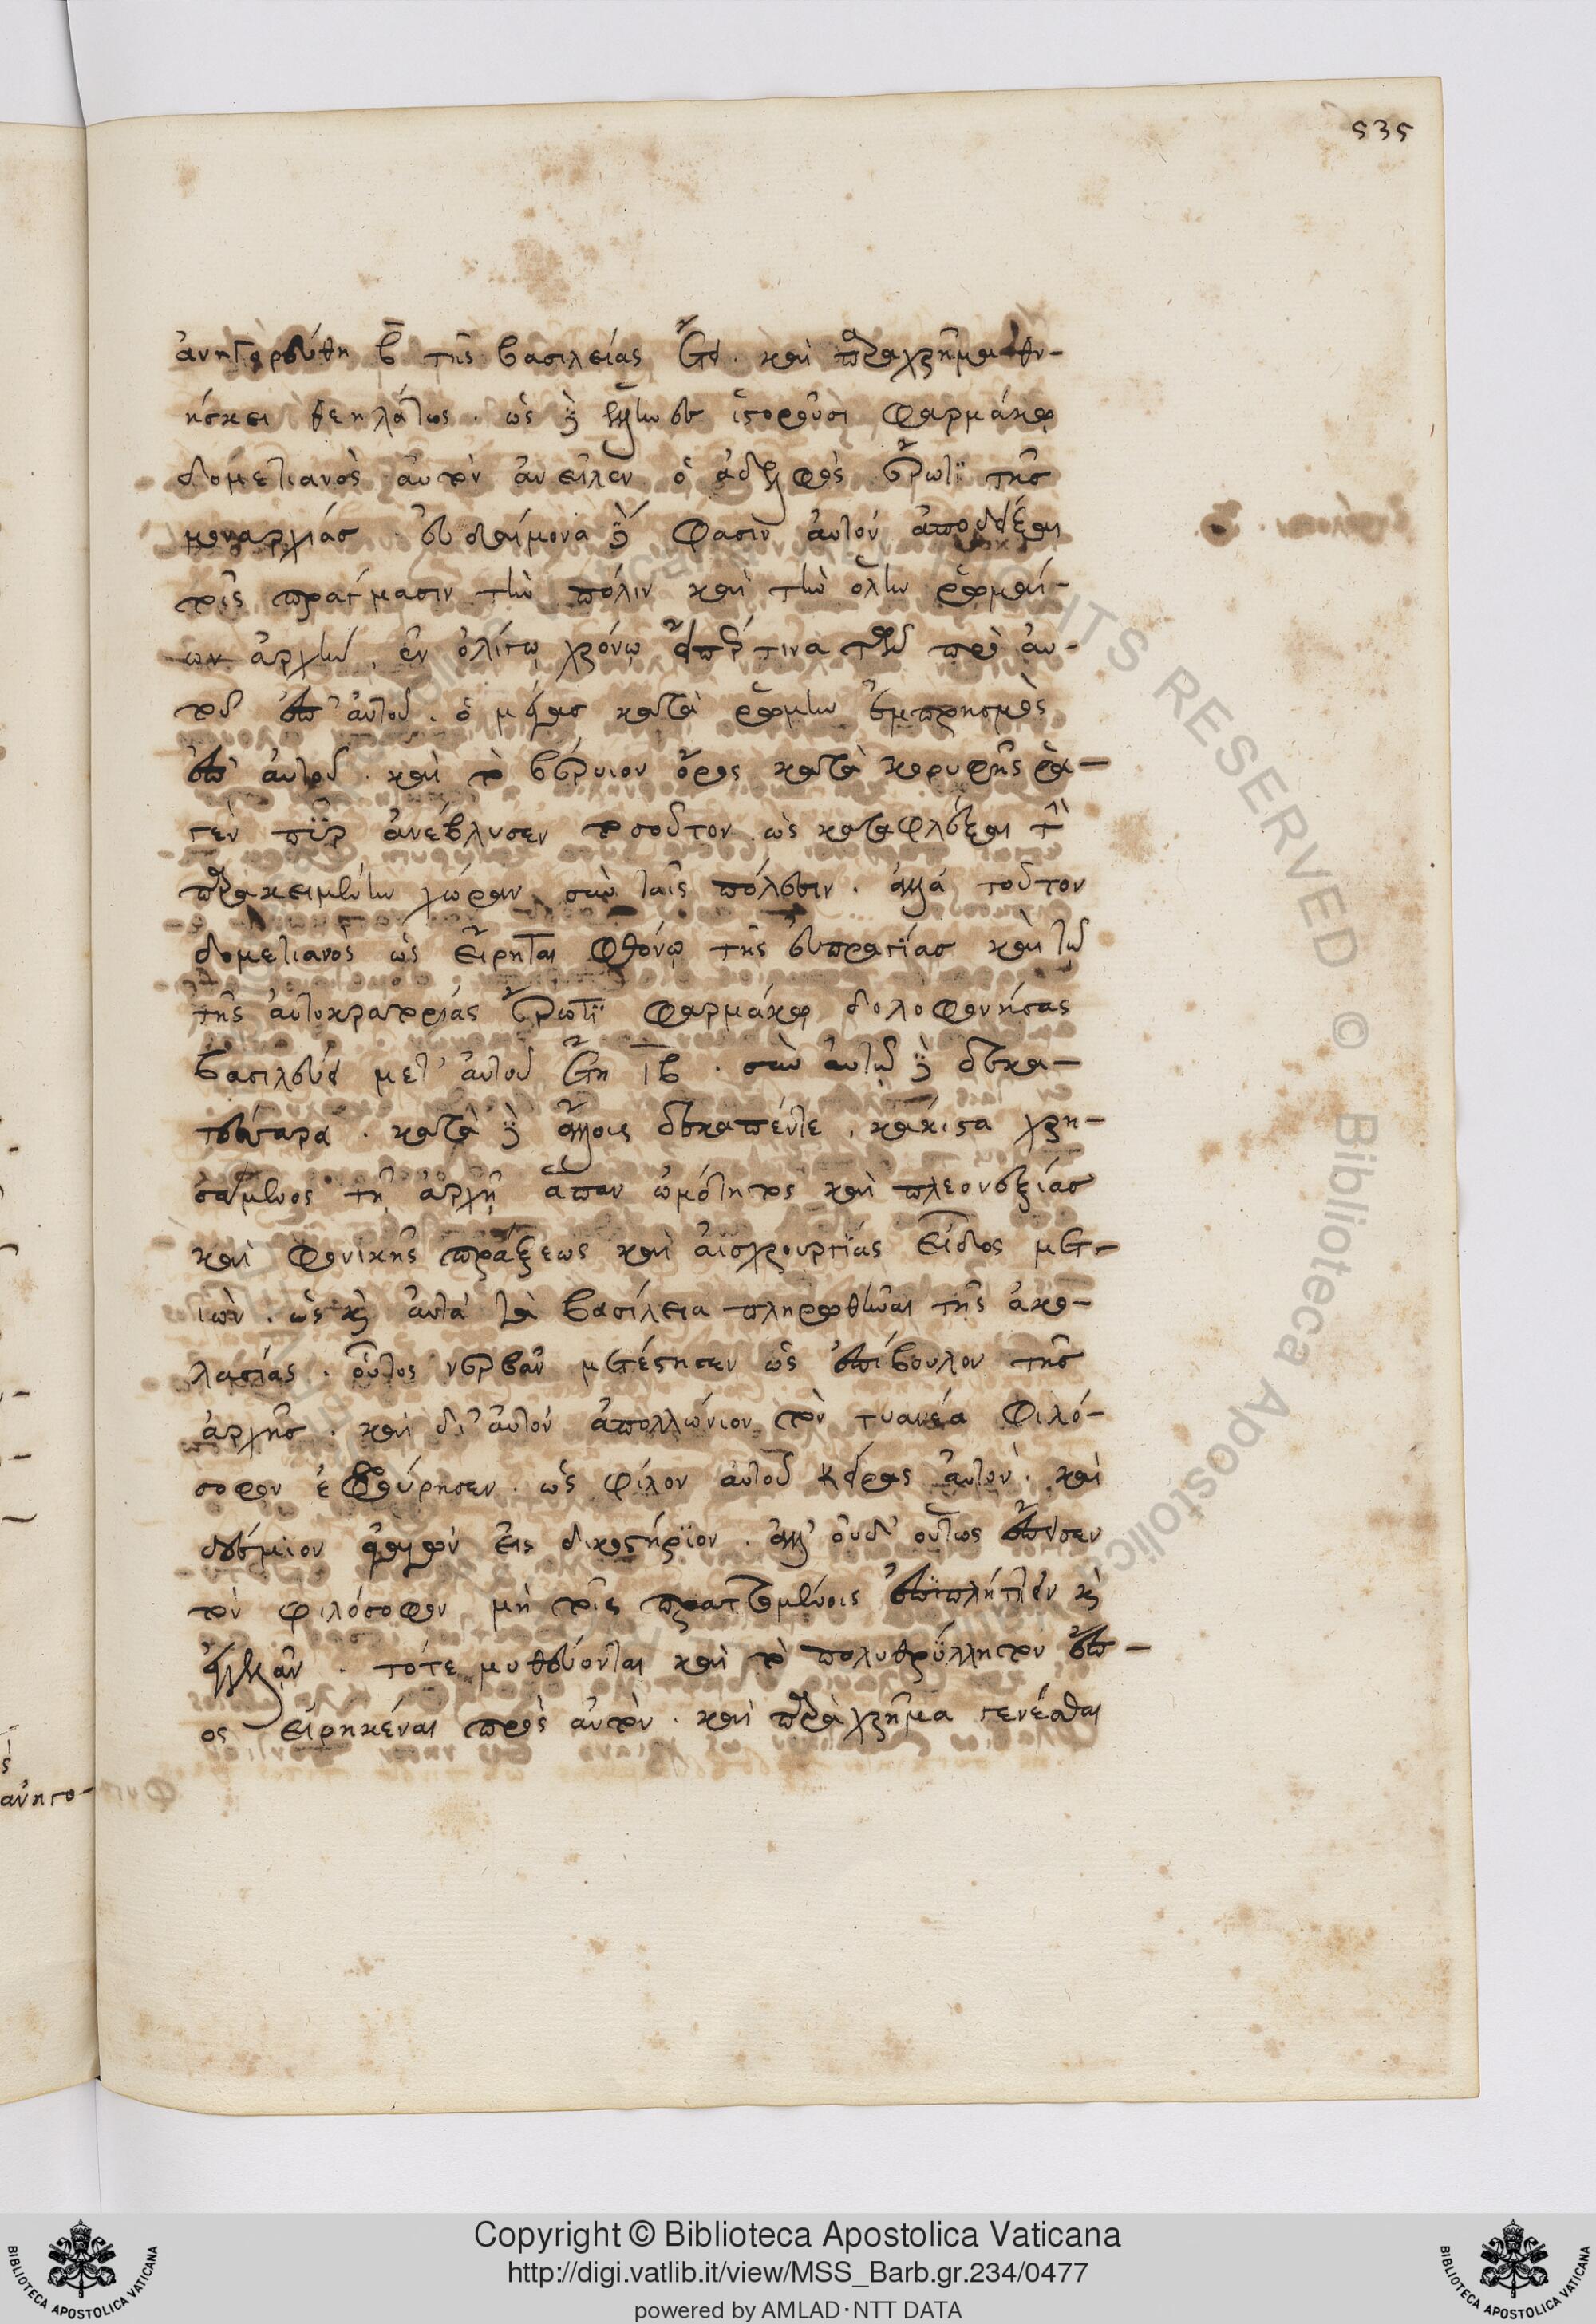 535
ἀνηγορεύθη β̄ τῆς βασιλείας ἔτει. καὶ παραχρῆμα θν-
ήσκει θεηλάτως. ὡς δὲ ἔνιοι ἱστοροῦσι φαρμάκῳ
δομετιανὸς αὐτὸν ἀνεῖλεν ὁ ἀδελφὸς ἔρωτι τῆς
μοναρχίας. εὐδαίμονα δὲ φασὶν αὐτὸν ἀποδεῖξαι
τοῖς πράγμασιν τὴν πόλιν καὶ τὴν ὅλην ῥωμαί-
ων ἀρχὴν, ἐν ὀλίγῳ χρόνῳ εἴπερ τινα τῶν πρὸ αὐ-
τοῦ ἐπ' αὐτοῦ. ὁ μέγας κατὰ ῥώμην ἐμπρησμὸς
ἐπ' αὐτοῦ. καὶ τὸ βέρυιον ὄρος κατὰ κορυφῆς ῥα-
γὲν πῦρ ἀνέβλυσεν τοσοῦτον ὡς καταφλέξαι τὴν
παρακειμένην χώραν σὺν ταῖς πόλεσιν. ἀλλὰ τοῦτον
δομετιανὸς ὡς εἴρηται φθόνῳ τῆς εὐπραγίας καὶ τῷ
τῆς αὐτοκρατορίας ἔρωτι φαρμάκῳ δολοφονήσας
βασιλεύει μετ' αὐτοῦ ἔτη ιβ. σὺν αὐτῷ δὲ δεκα-
τέσσαρα. κατὰ δὲ ἄλλοις δεκαπέντε, κάκιστα χρη-
σάμενος τῇ ἀρχῇ ἅπαν ὠμότητος καὶ πλεονεξίας
καὶ φονικῆς πράξεως καὶ αἰσχρουργίας εἶδος μετ-
ιὼν. ὡς καὶ αὐτὰ τὰ βασίλεια πληρωθῆναι τῆς ἀκο-
λασίας. οὗτος νερβᾶν μετέστησεν ὡς ἐπίβουλον τῆς
ἀρχῆς. καὶ δι' αὐτὸν ἀπολλώνιον τὸν τυανέα φιλό-
σοφον ἐφρούρησεν. ὡς φίλον αὐτοῦ κείρας αὐτὸν. καὶ
δέσμιον ἀγαγὼν εἰς δικαστήριον. ἀλλ' οὐδ' οὕτως ἔπεισεν
τὸν φιλόσοφον μὴ τοῖς πραττομένοις ἐπιπλήττειν καὶ
ἐλέγχειν. τότε μυθεύονται καὶ τὸ πολυθρύλλητον ἔπ-
ος εἰρηκέναι πρὸς αὐτὸν. καὶ παραχρῆμα γενέσθαι
ἀνηγο-
Copyright © Biblioteca Apostolica Vaticana
http://digi.vatlib.it/view/MSS_Barb.gr.234/0477
powered by AMLAD·NTT DATA
BIBLIOTECA APOSTOLICA VATICANA
BIBLIOTECA APOSTOLICA VATICANA